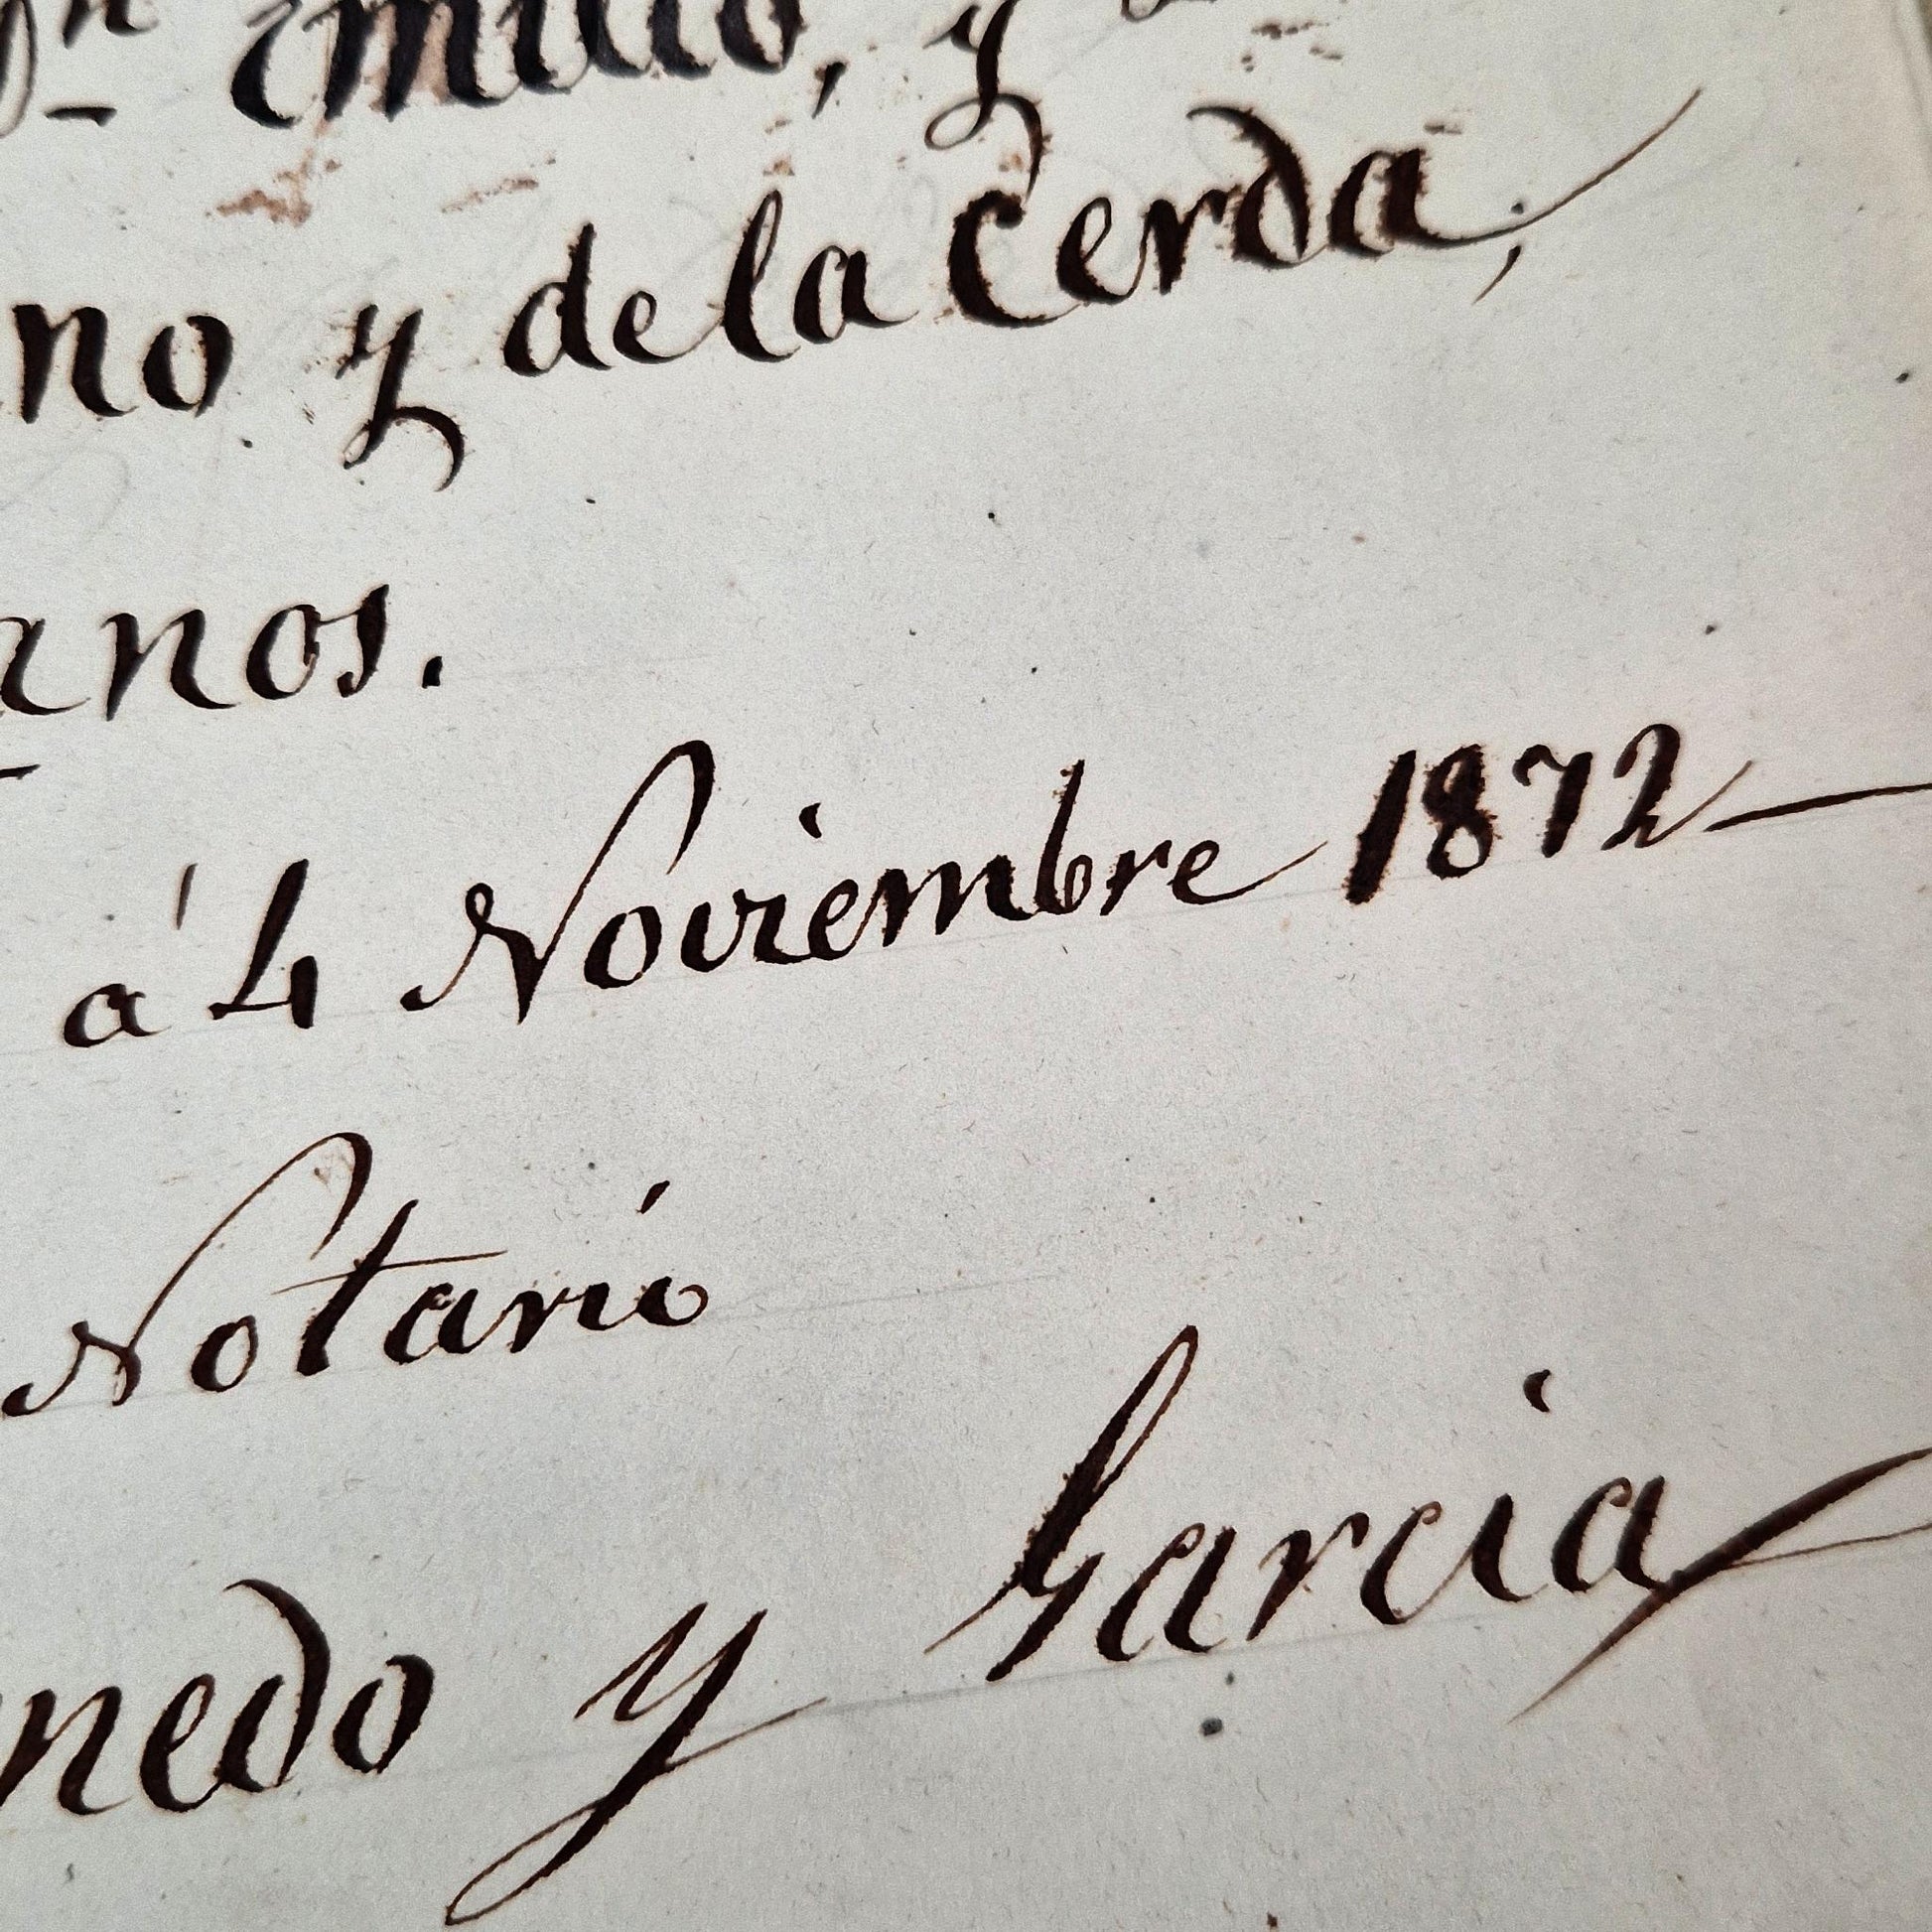 Emilio, y
no y de la Cerda,
anos.
á 4 Noviembre 1872
Notario
nedo y Garcia